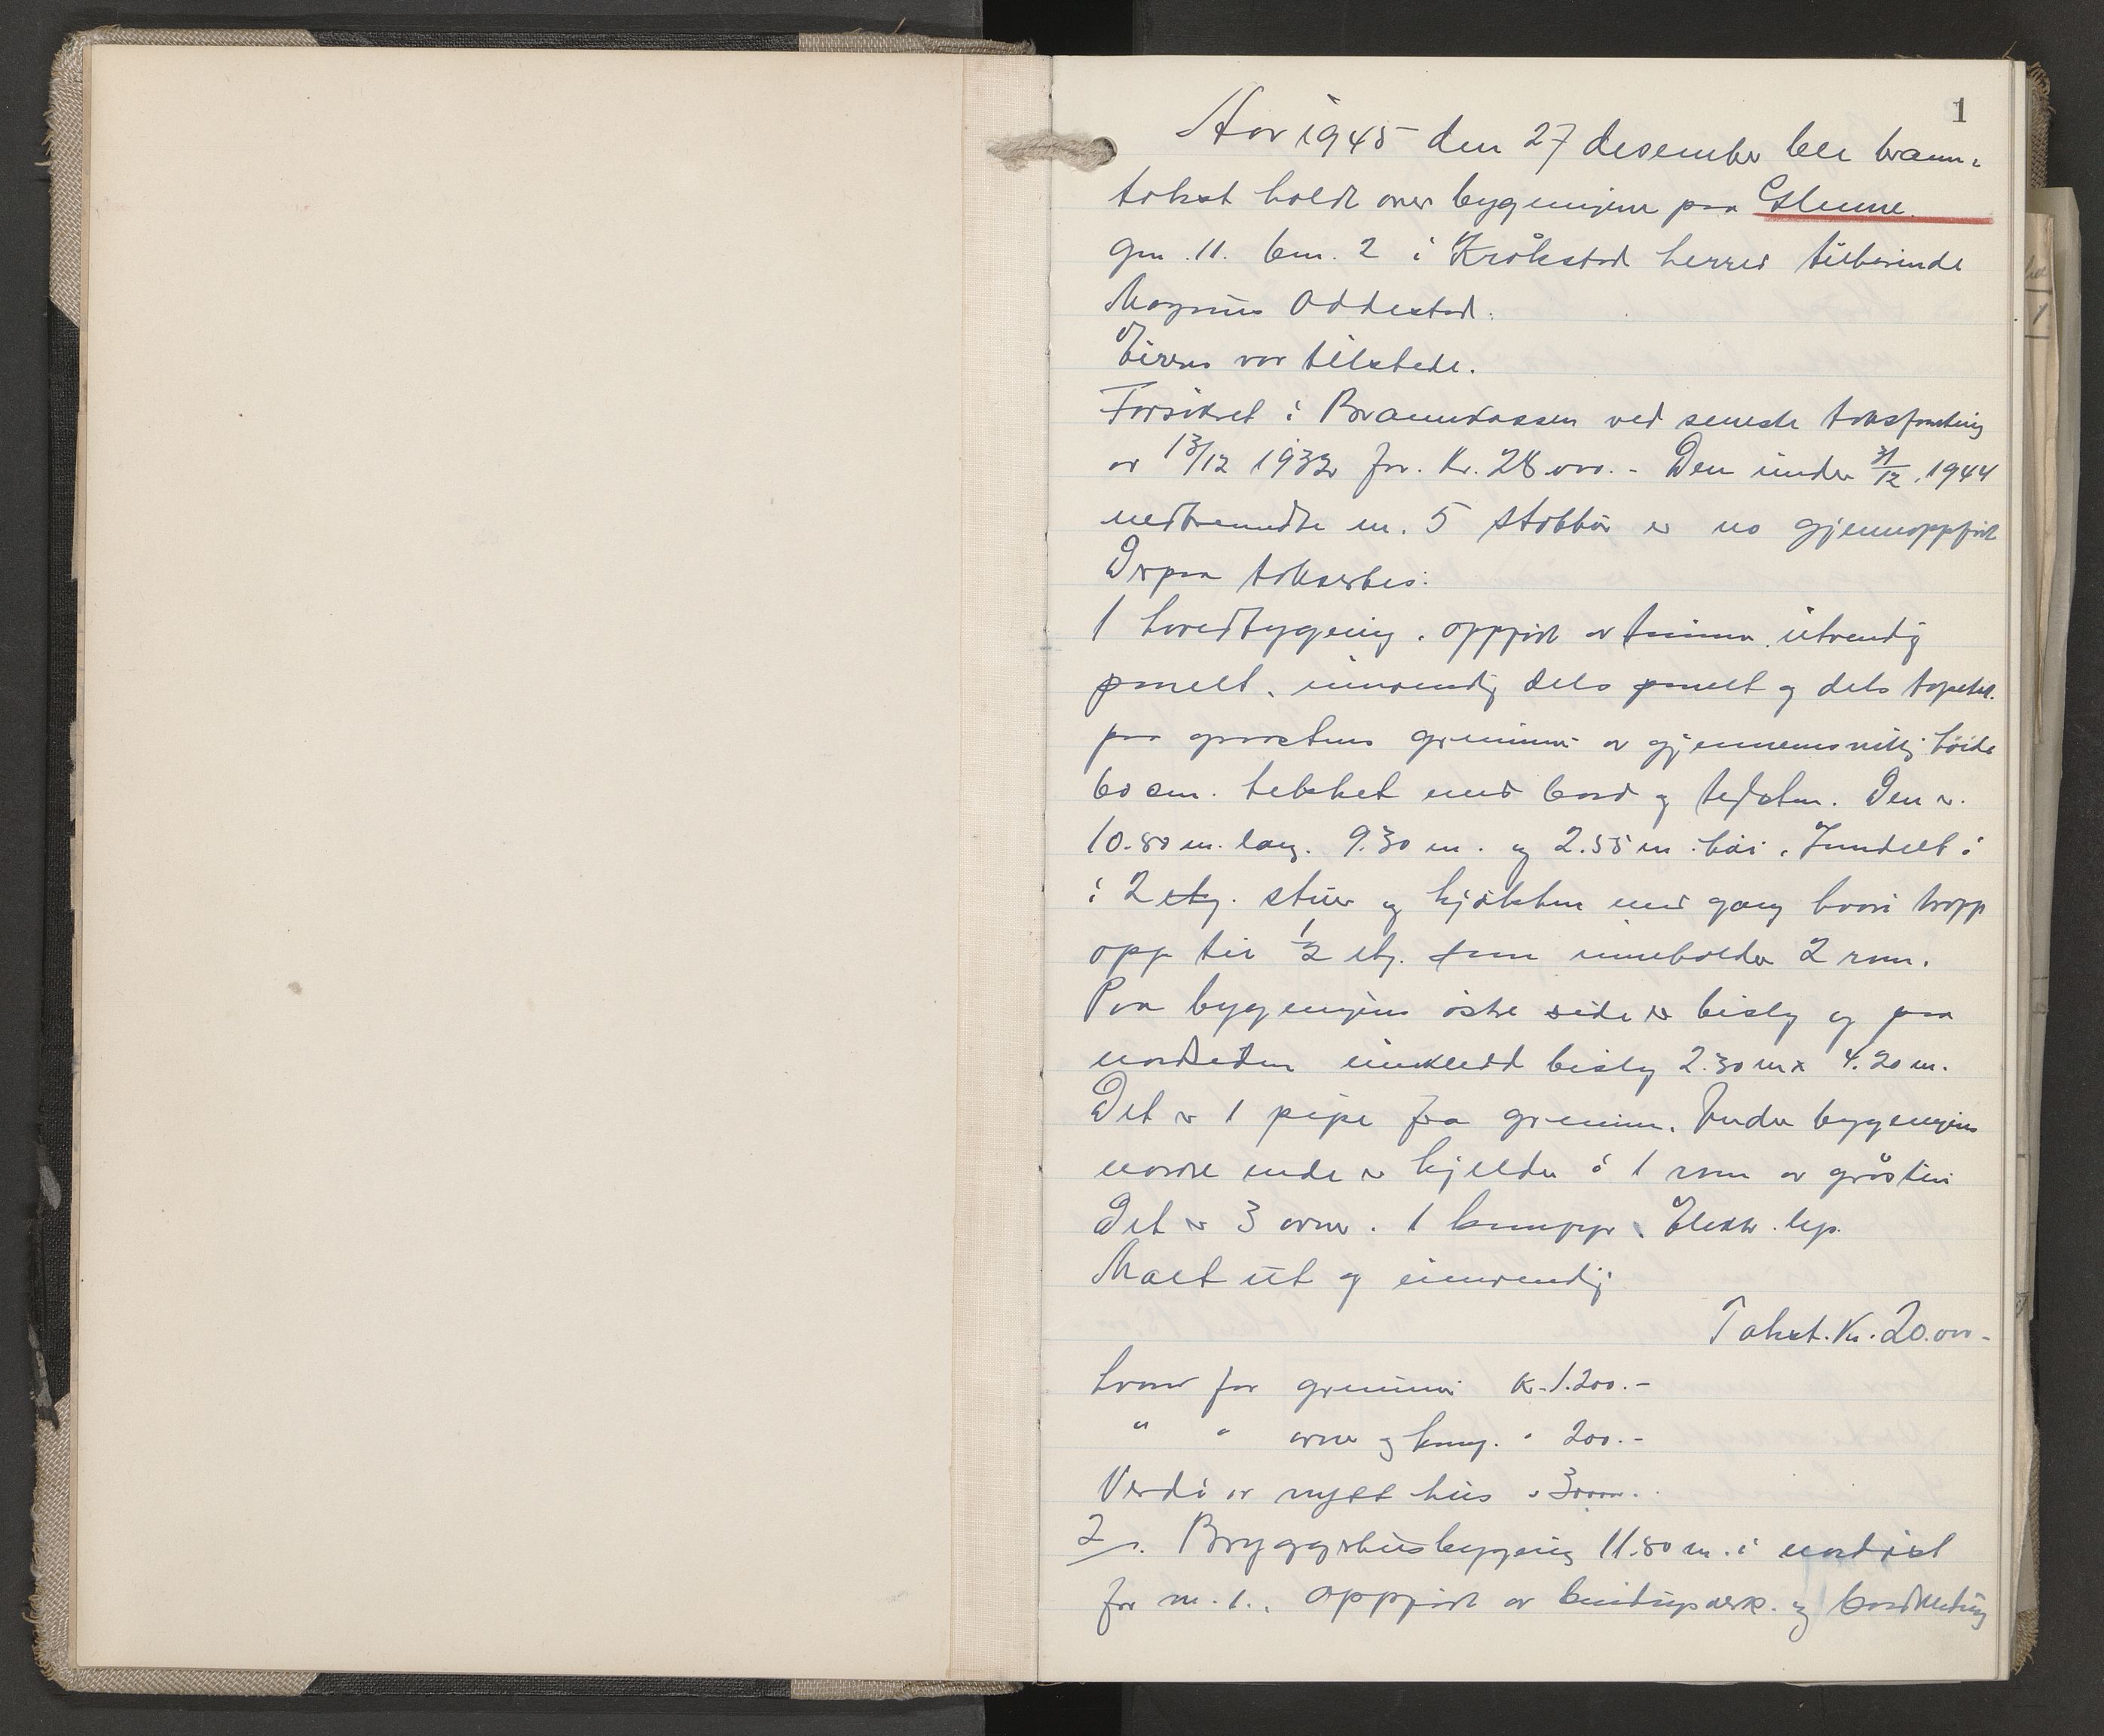 1
Aar 1945 den 27 desember ble brann-
takst holdt over bygningene paa
gn. 11. bn. 2 i Kråkstad herred tilhørende
Magnus Oddestad.
Eieren var tilstede.
Forsikret i Brannkassen ved seneste
av 13/12 1932 for. Kr. 28.000.- Den under 31/12. 1944
nedbrendte nr. 5 stabbur er no gjennoppført
Derpaa taksertes:
1 hovedbygning. oppført av tømmer. utvendig
panelt, innvendig dels panelt og dels tapetsert.
paa graastens grunnmur av gjennemsnittlig høide
60 cm. tekket med bord og teglsten. Den er.
10.80 m. lang. 9.30 m. og 2.55 m. høi. Inndelt i
i 2 etg. stuer og kjøkken med gang hvori trapp
opp til 1/2 etg. som inneholder 2 rom.
Paa bygningens østre side er bislag og paa
nordsiden innkledd bislag 2.30 m x 4.20 m.
Det er 1 pipe fra grunnen. Under bygningens
nordre ende er kjelder i 1 rom av gråstein
Det er 3 ovner. 1 komfyr. Elektr. lys.
Malt ut og innvendig
Takst. Kr. 20.000-
hvorav for grunnmur Kr. 1.200.-
" " ovner og komf. " 200.-
Verdi av nytt hus
2/. Bryggerhusbygning 11.80 m. i nordøst
for nr. 1.. oppført av bindingsverk. og bordkledning